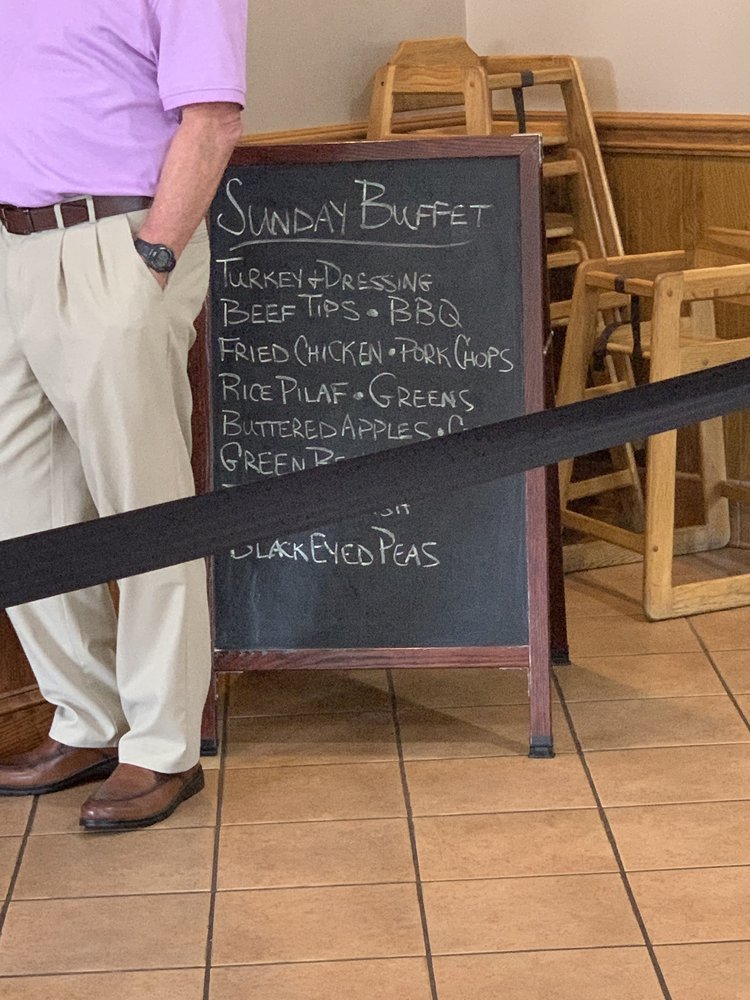 SUNDAY BUFFET
TURKEY + DRESSING
BEEF TIPS • BBQ
FRIED CHICKEN • PORK CHOPS
RICE PILAF • GREENS
BUTTERED APPLES •
GREEN
BLACKEYED PEAS